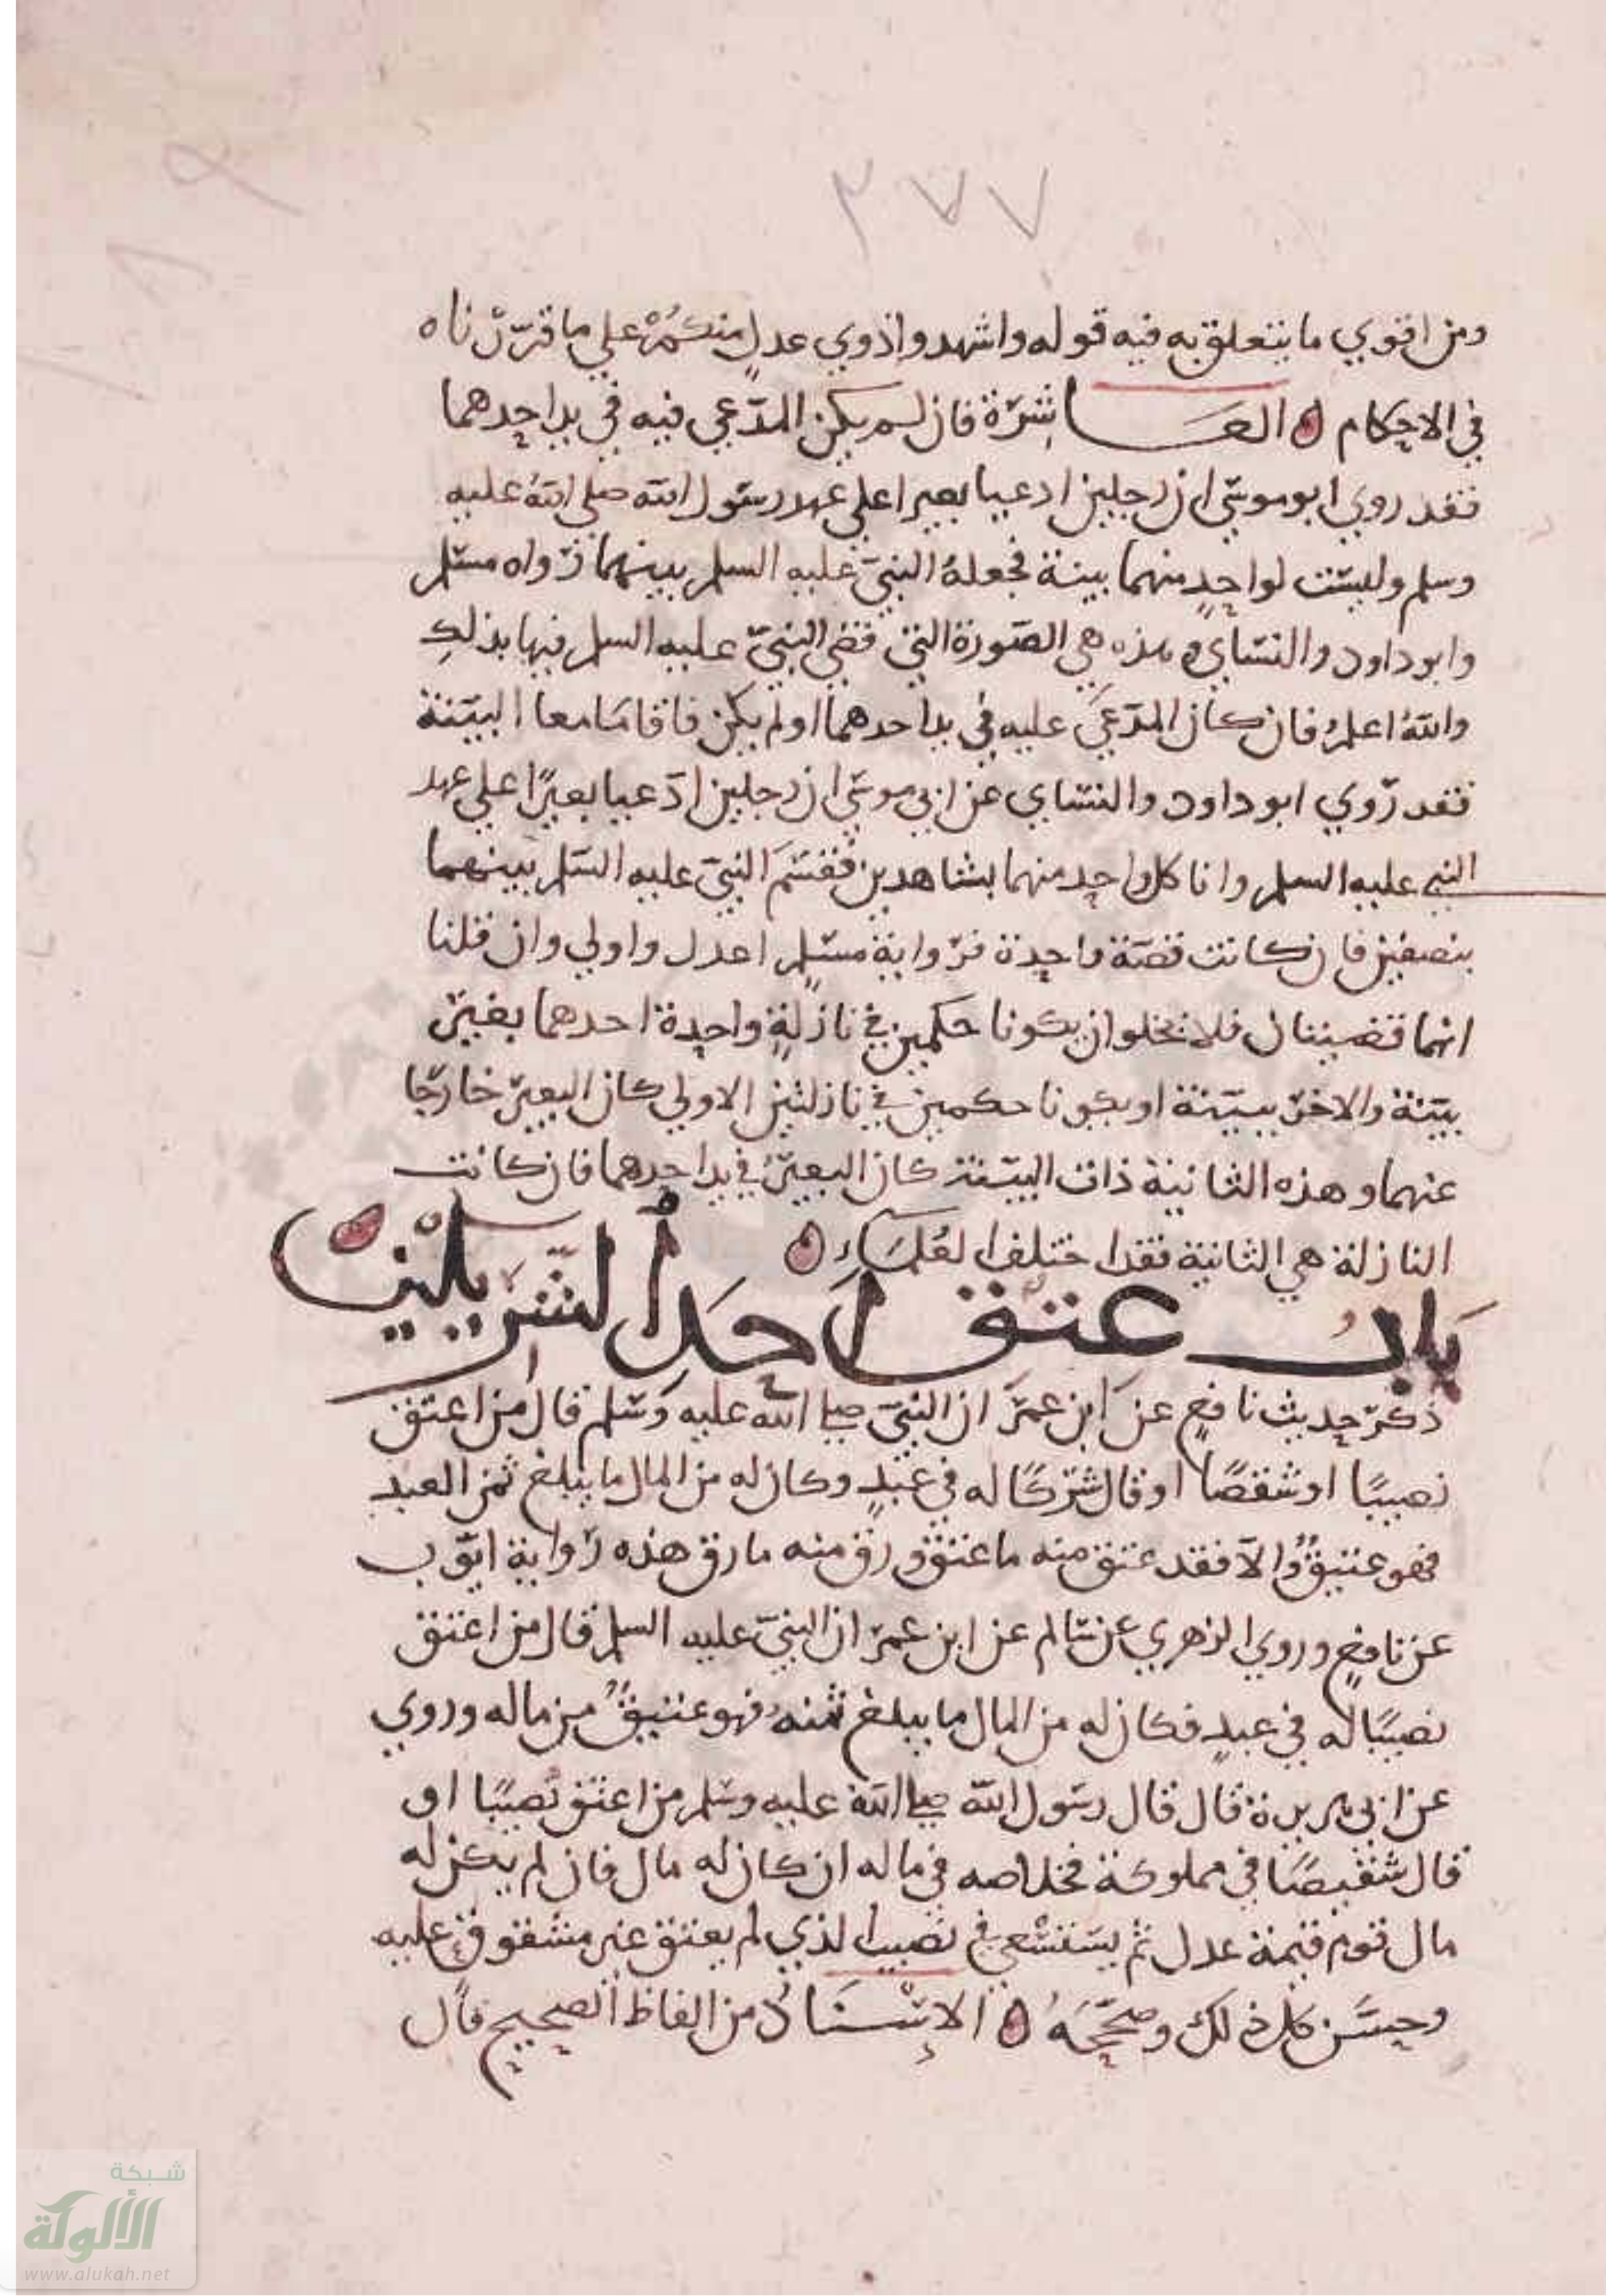 ٣٧٧
ومن اقوي ما يتعلق به فيه قوله واشهدوا ذوي عدلٍ منكمْ علي ما قررناه
في الاحكام ه العاشرة فان لم يكن المدّعي فيه في يد احدهما
فقد روي ابو موسي ان رجلين ادعيا بعيرا علي عهد رسول الله صلي الله عليه
وسلم وليست لواحدٍ منهما بينة فجعلهُ النبيّ عليه السلم بينهما رواه مسلم
وابو داود والنساي وهذه هي الصورة التي قضي النبيّ عليه السلم فيها بذلك
واللهُ اعلمُ فان كان المدّعيَ عليه في يد احدهما او لم يكن فاقامَا معا البيّنة
فقد روي ابو داود والنساي عن ابي موسي ان رجلين ادّعيا بعيرًا علي عهد
النبي عليه السلم واتا كل واحد منهما بشاهدين فقسَمَ النبيّ عليه السلم بينهما
بنصفين فان كانت قصّة واحدة فرواية مسلم اعدل واولي وان قلنا
انهما قضيتان فلا يخلو ان يكونا حكمين في نازلةٍ واحدة احدهما بغير
بيّنة والاخر ببيّنة او يكونا حكمين في نازلتين الاولي كان البعير خارجًا
عنهما وهذه الثانية ذات البيّنة كان البعيرُ في يد احدهما فان كانت
النازلة هي الثانية فقد اختلف العُلمَاءِ ه
بابُ عتق احَد الشريكين ه
ذكر حديث نافعٍ عن ابن عمرَ ان النبيّ صلي الله عليه وسلم قال من اعتق
نصيبًا او شقصًا او قال شركًا له في عبدٍ وكان له من المال ما يبلغ ثمن العبد
فهو عتيقٌ والاّ فقد عتق منه ما عتق ورق منه ما رق هذه رواية ايّوب
عن نافعٍ وروي الزهري عن سالم عن ابن عمر ان النبيّ عليه السلم قال من اعتق
نصيبًا له في عبدٍ فكان له من المال ما يبلغ ثمنهُ فهو عتيقٌ من ماله وروي
عن ابي هريرة قال قال رسول الله صلي الله عليه وسلم من اعتق نصيبًا او
قال شقيصًا في مملوكة فخلاصه في ماله ان كان له مال فان لم يكن له
مال قوم قيمة عدل ثم يستسْعي في نصيب الذي لم يعتق غير مشقوقٍ عليه
وحسَّن كل ذلك وصحّحَهُ ه الإسْنادُ من الفاظ الصحيح قال
شبكة
الألوكة
www.alukah.net